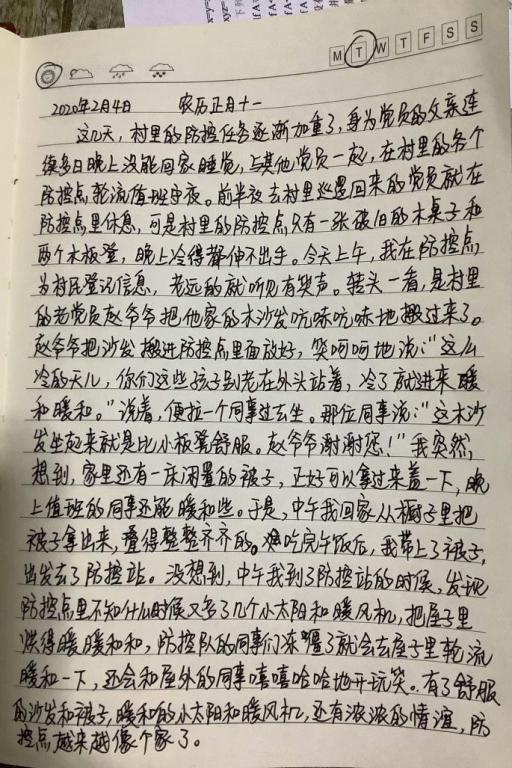 M T W T F S S
2020年2月4日 农历正月十一
这几天，村里的防控任务逐渐加重了，身为党员的父亲连
续多日晚上没能回家睡觉，与其他党员一起，在村里的各个
防控点轮流值班守夜。前半夜去村里巡逻回来的党员就在
防控点里休息，可是村里的防控点只有一张破旧的木桌子和
两个木板凳，晚上冷得都伸不出手。今天上午，我在防控点
为村民登记信息，老远的就听见有笑声。转头一看，是村里
的老党员赵爷爷把他家的木沙发吭哧吭哧地搬过来了。
赵爷爷把沙发搬进防控点里面放好，笑呵呵地说：“这么
冷的天儿，你们这些孩子别老在外头站着，冷了就进来暖
和暖和。”说着，便拉一个同事过去坐。那位同事说：“这木沙
发坐起来就是比小板凳舒服。赵爷爷谢谢您！”我突然
想到，家里还有一床闲置的被子，正好可以拿过来盖一下，晚
上值班的同事还能暖和些。于是，中午我回家从橱子里把
被子拿出来，叠得整整齐齐的。吃完午饭后，我带上了被子，
出发去了防控站。没想到，中午我到了防控站的时候，发现
防控点里不知什么时候又多了几个小太阳和暖风机，把屋子里
烘得暖暖和和，防控队的同事们冻僵了就会去屋子里轮流
暖和一下，还会和屋外的同事嘻嘻哈哈地开玩笑。有了舒服
的沙发和被子，暖和的小太阳和暖风机，还有浓浓的情谊，防
控点越来越像个家了。